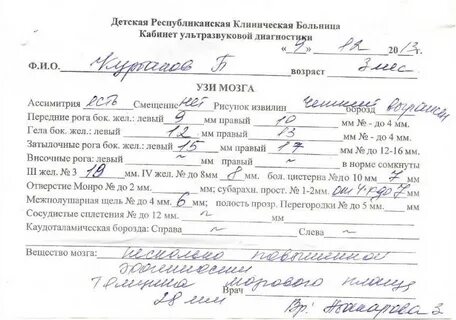 Детская Республиканская Клиническая Больница
Кабинет ультразвуковой диагностики
«9» 12 2013г.
Ф.И.О. Б возраст 3 мес
УЗИ МОЗГА
Ассимитрия есть Смещение нет Рисунок извилин борозд Четкий выражен
Передние рога бок. жел.: левый 9 мм правый 10 мм № - до 4 мм.
Тела бок. жел.: левый 12 мм правый 13 мм № - до 4 мм.
Затылочные рога бок. жел.: левый 15 мм правый 17 мм № до 12-16 мм.
Височные рога: левый ~ правый ~ в норме сомкнуты
III жел. № 3 19 мм. IV жел. № до 8мм 8 мм. бол. цистерна № до 10 мм 7 мм.
Отверстие Монро № до 2 мм; субарахн. прост. № 1-2мм. от 4 до 7 мм
Межполушарная щель № до 4 мм. 6 мм; полость прозр. Перегородки № до 5 мм. мм.
Сосудистые сплетения № до 12 мм. ~
Каудоталамическая борозда: Справа ~ Слева ~
Вещество мозга: несколько повышенной
эхогенности
Толщина мозгового плаща
28 мм Врач Вр: